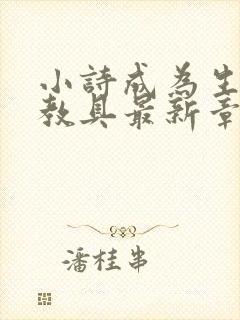 小詩成為生
教具最新章
潘桂串